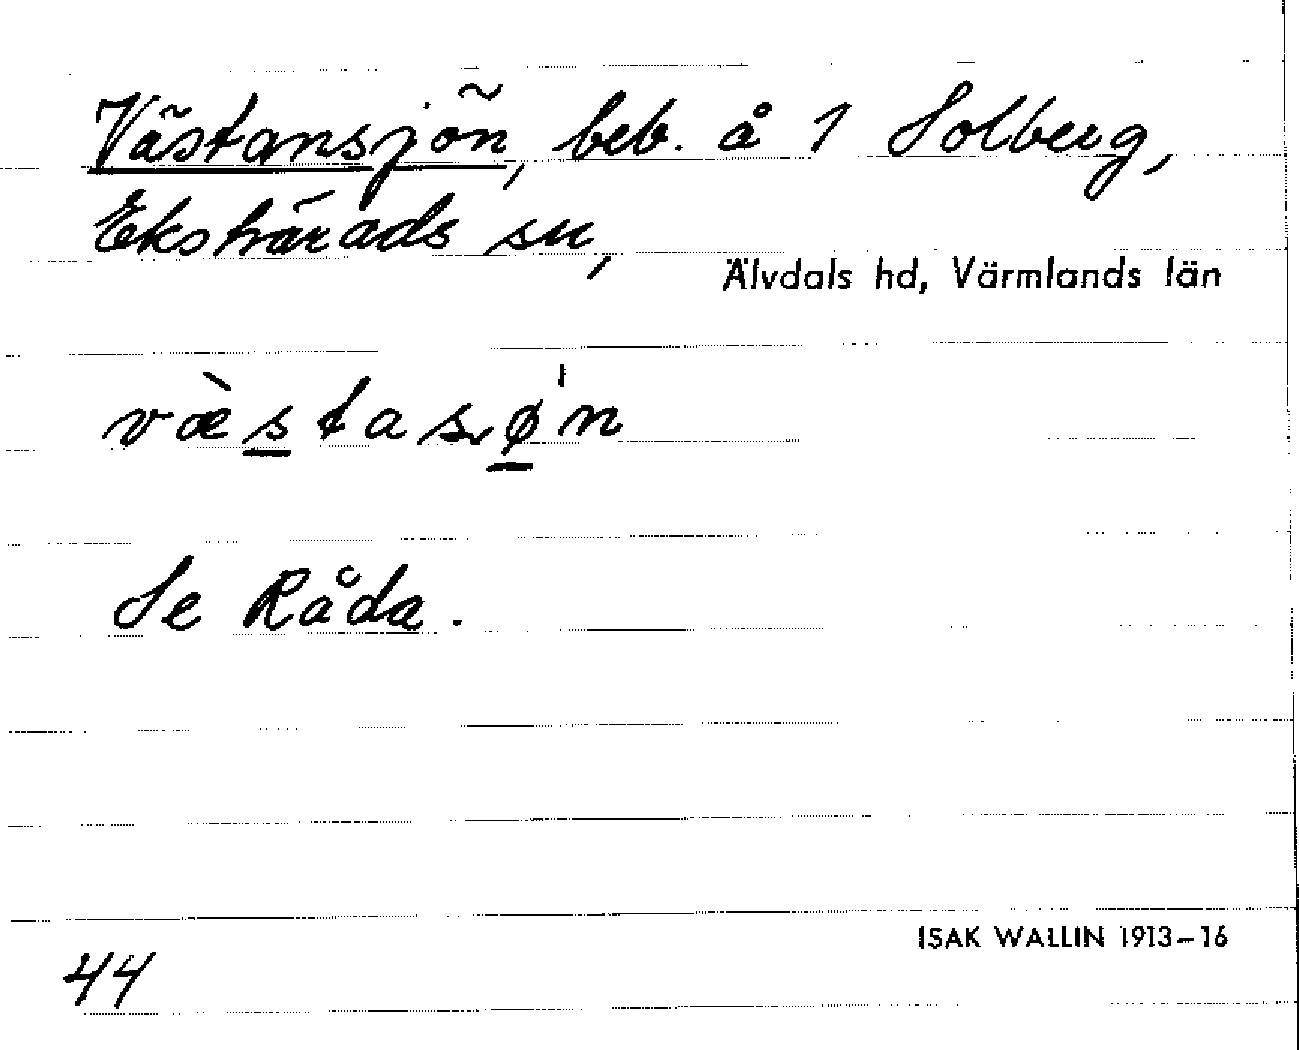 Västansjön, beb. å 1 Solberg,
Ekshärads sn,
Älvdals hd, Värmlands län
væ̀stasø̍n
Se Råda.
ISAK WALLIN 1913–16
44